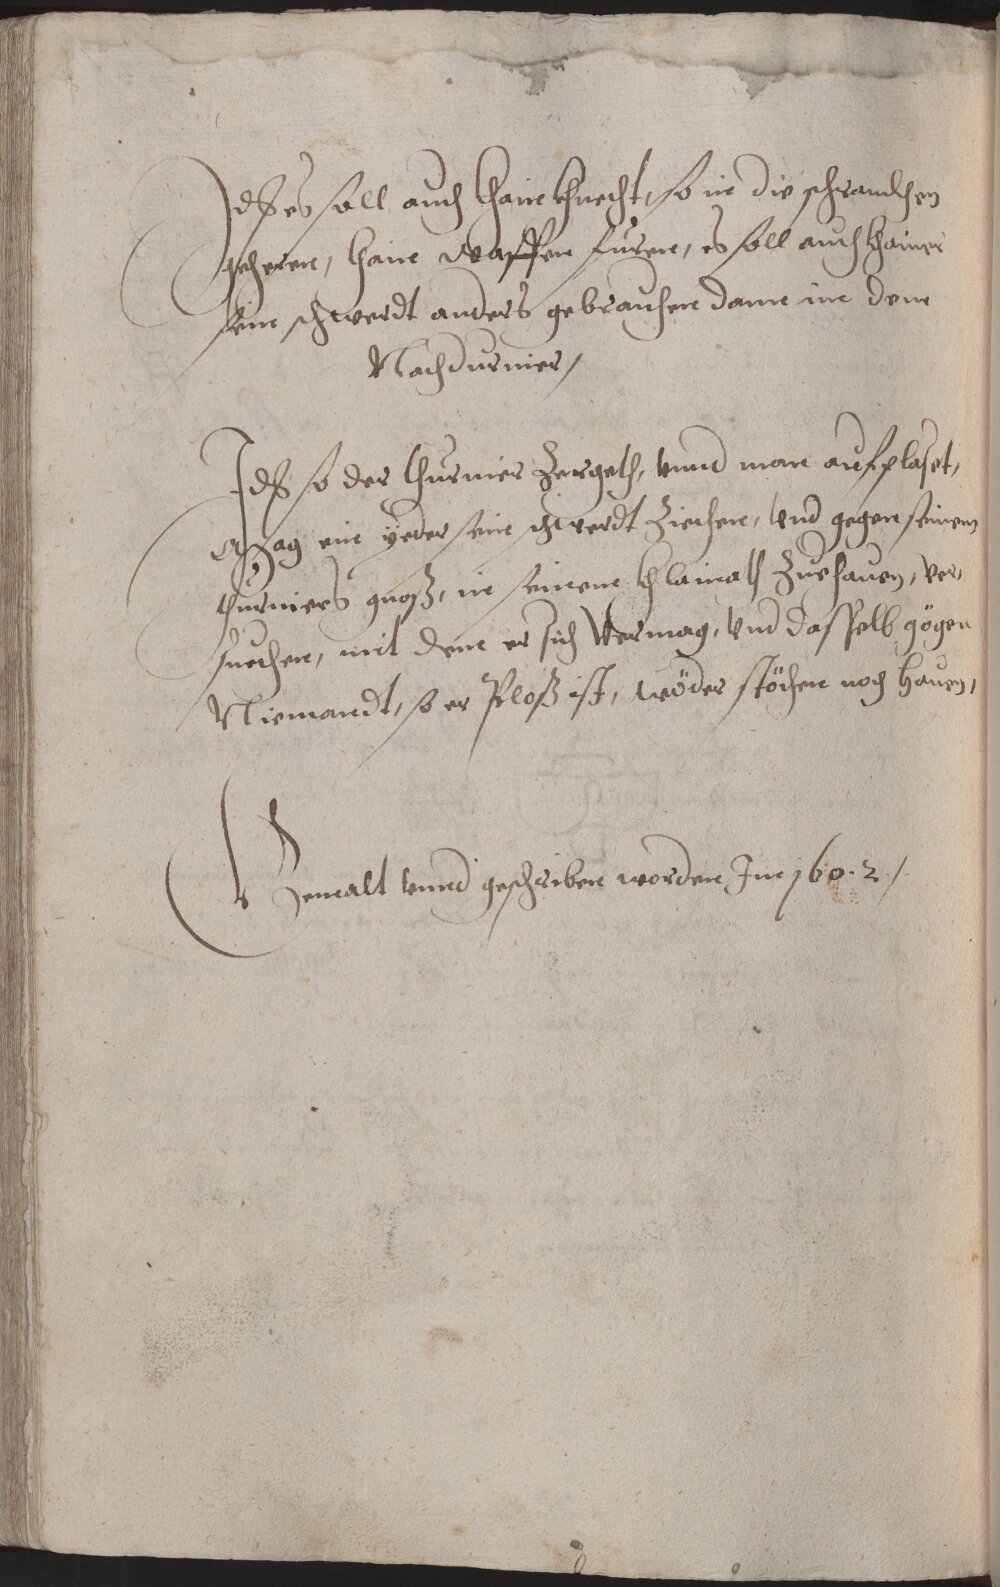 Ids es soll auch khain khnecht, so in die schranckhen
gehören, khain waffen füren, es soll auch khainer
sein schwerdt anders gebrauchen dann im dem
Nachdurnier /
Ids so der thurnier zergeth, vnnd man aufplaset,
mag ein yeder sein schwerdt ziechen, vnd gegen seinem
thurniers gnoß, in seinem khlainath zuehauen, ver-
suechen, mit dem er sich vermag, vnd dasselb gögen
Niemandt, so er Ploß ist, wöder stöchen noch hauen,
Gemalt vnnd geschriben worden Im 1602 /.